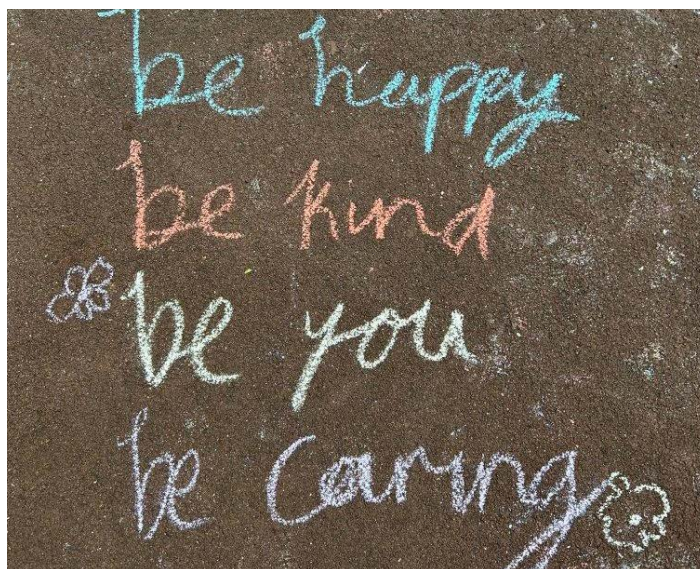 be happy
be kind
be you
be caring